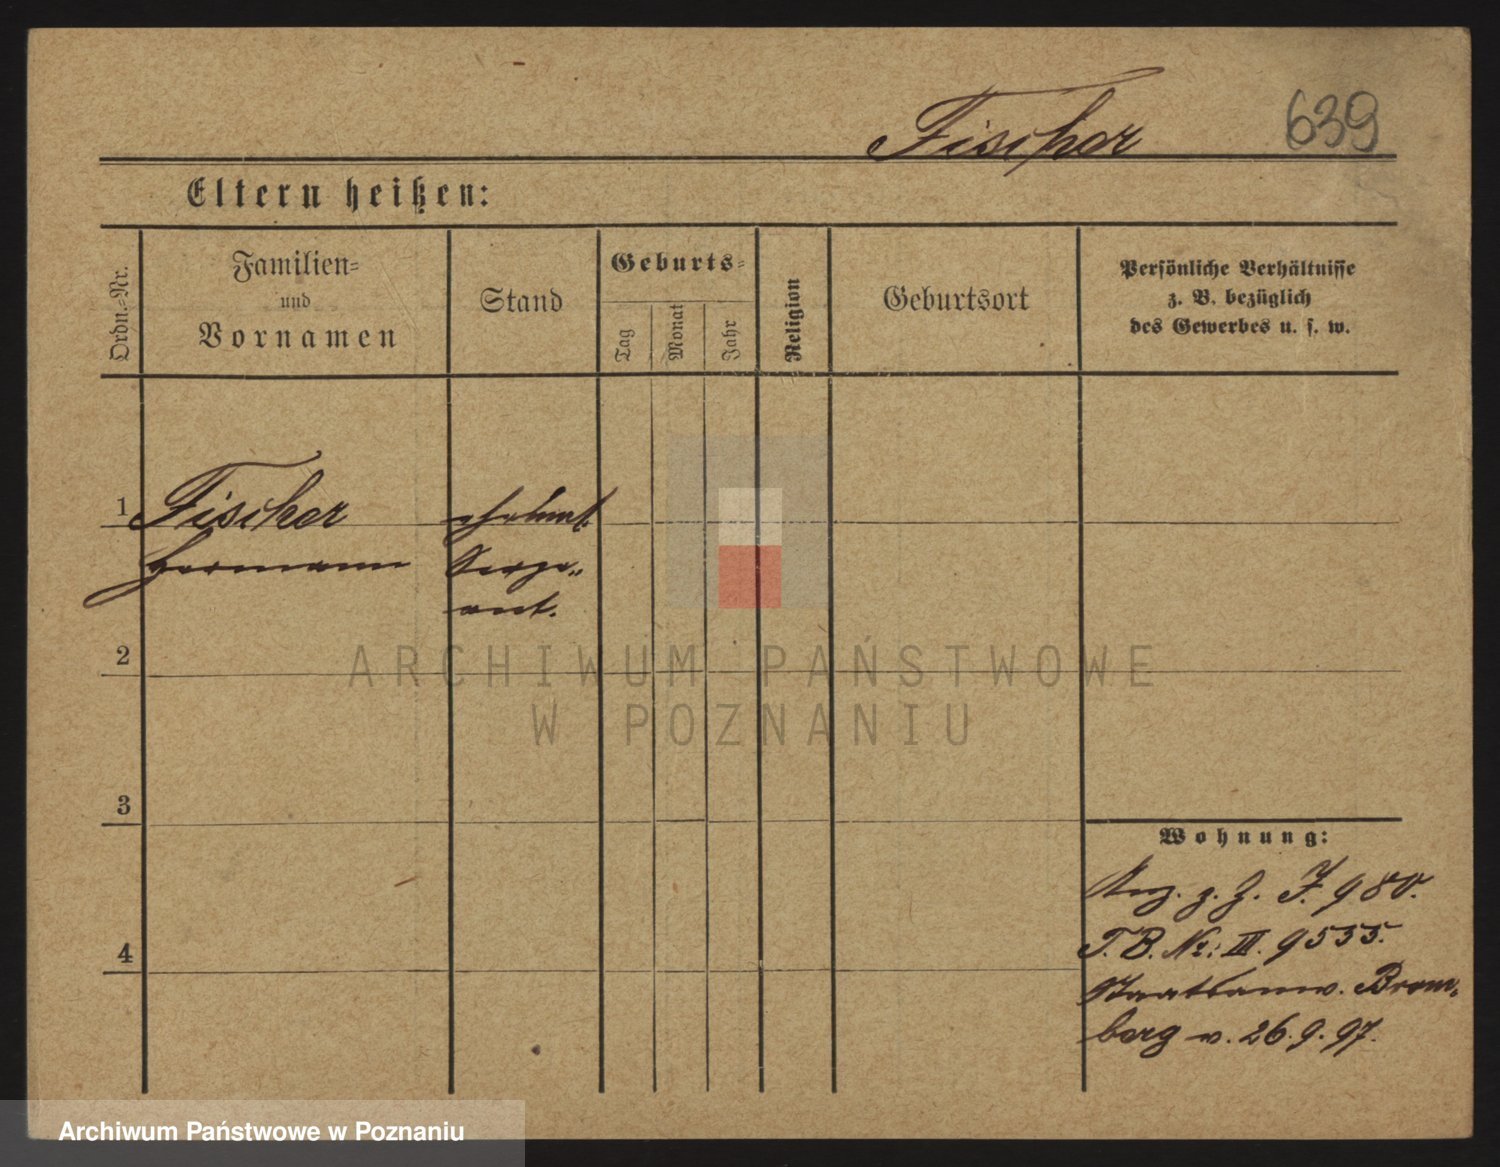 Fischer 639
Eltern heißen:
Ordn.-Nr.
Familien-
und
Vornamen
Stand
Geburts-
Tag
Monat
Jahr
Religion
Geburtsort
Persönliche Verhältnisse
z. B. bezüglich
des Gewerbes u. s. w.
1
Fischer
Hermann
ehemal.
Serge„
ant.
2
ARCHIWUM PAŃSTWOWE
W POZNANIU
3
Wohnung:
z. J. 980.
T. B. Nr.: III. 9535.
4
Staatsanw. Brom„
berg v. 26. 9. 97.
Archiwum Państwowe w Poznaniu